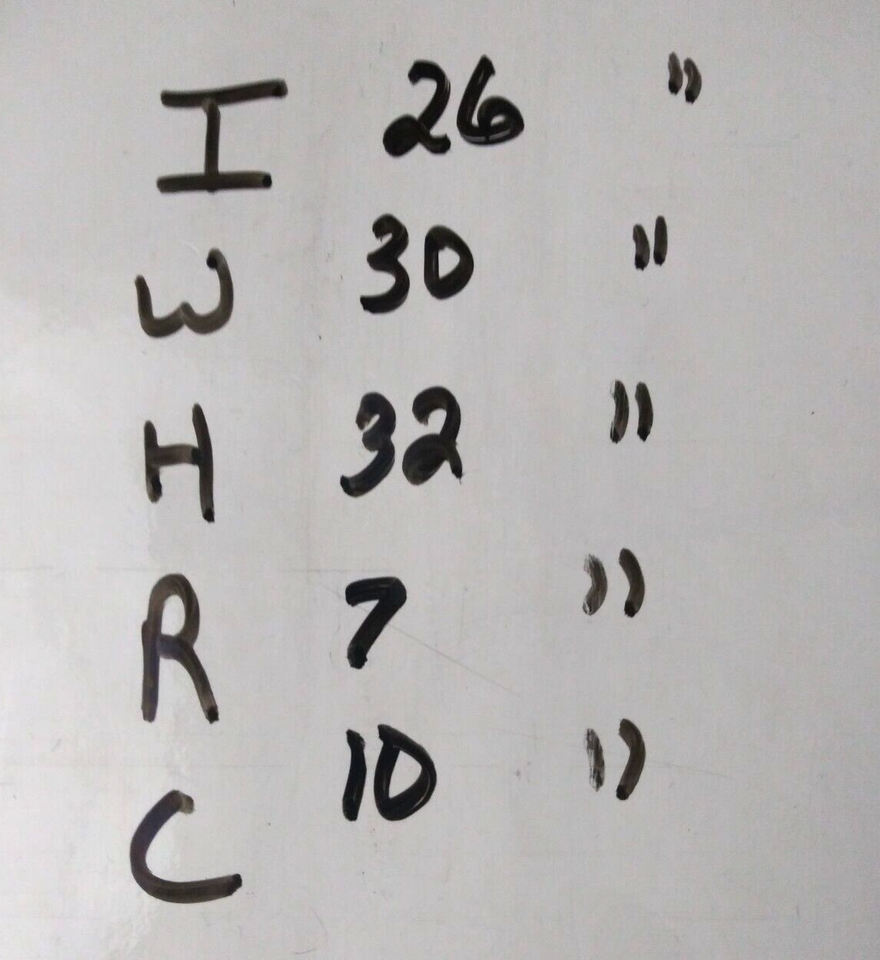 I 26 "
W 30 "
H 32 "
R 7 "
C 10 "